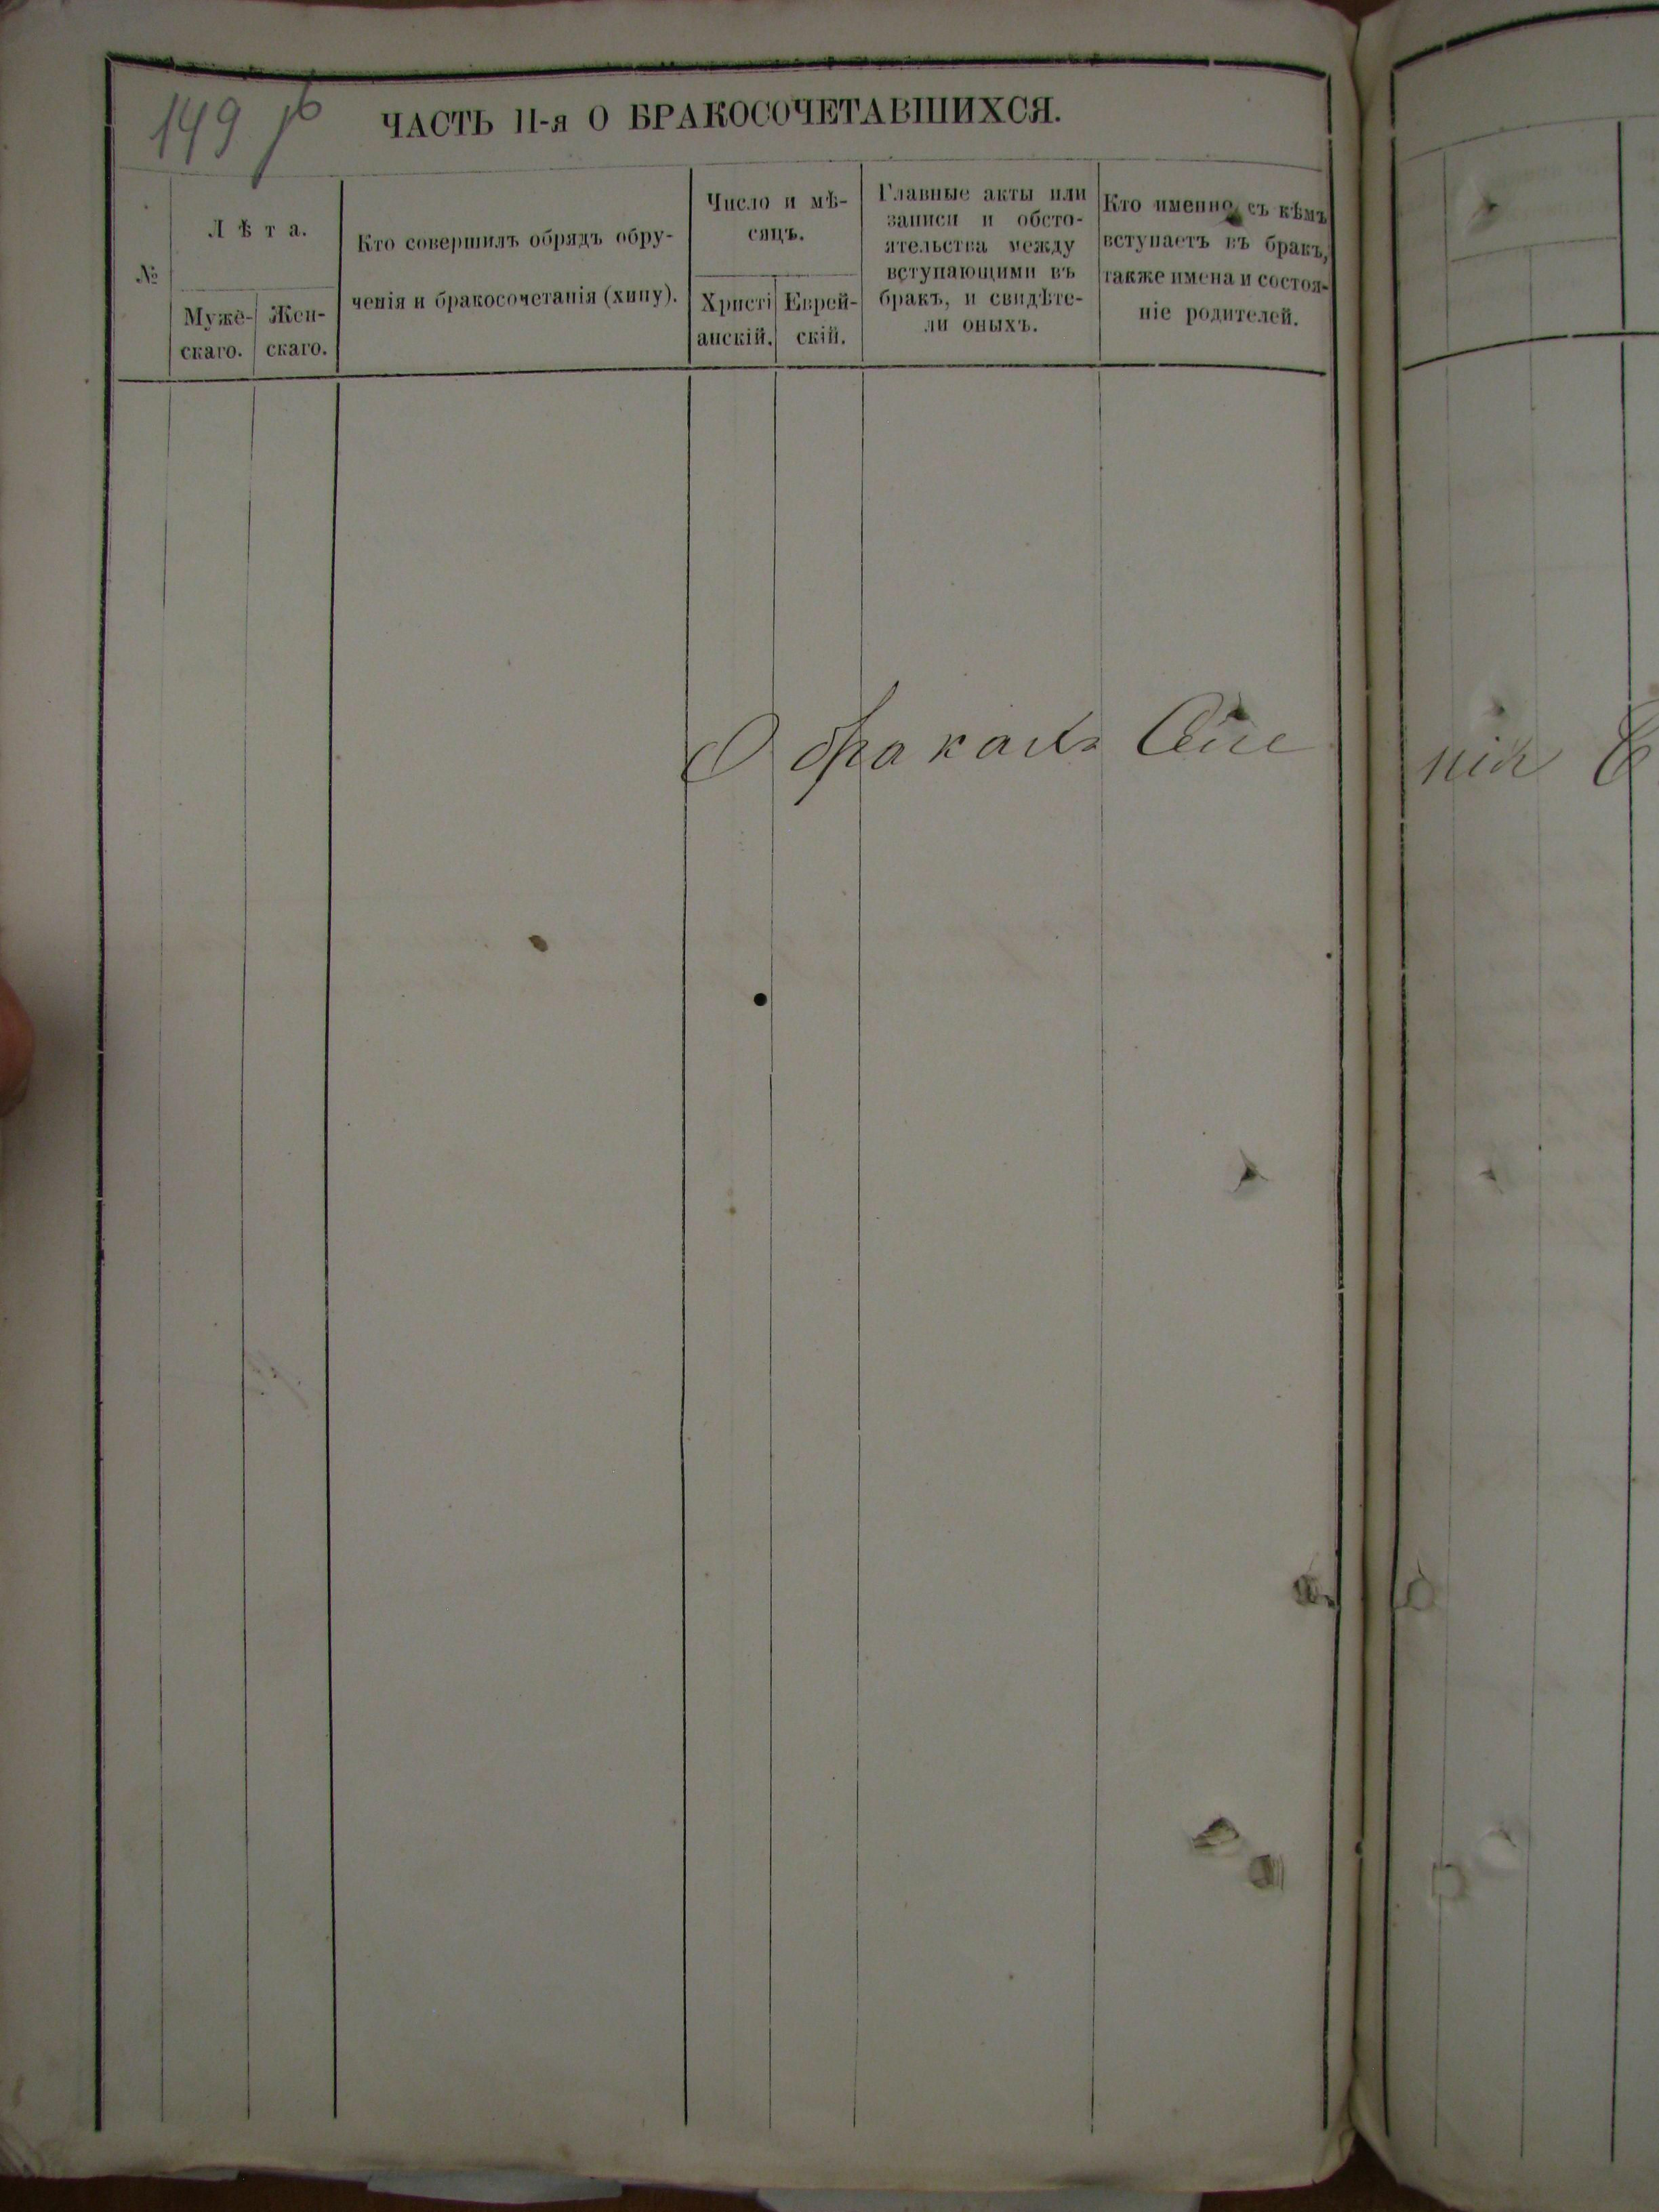 149 об
ЧАСТЬ II-я О БРАКОСОЧЕТАВШИХСЯ.
№
Лѣта.
Муже-
скаго.
Жен-
скаго.
Кто совершилъ обрядъ обру-
ченія и бракосочетанія (хипу).
Число и мѣ-
сяцъ.
Христі
анскій.
Еврей-
скій.
Главные акты или
записи и обсто-
ятельства между
вступающими въ
бракъ, и свидѣте-
ли оныхъ.
Кто именно съ кѣмъ
вступаетъ въ бракъ,
также имена и состоя-
ніе родителей.
О бракахъ
нія